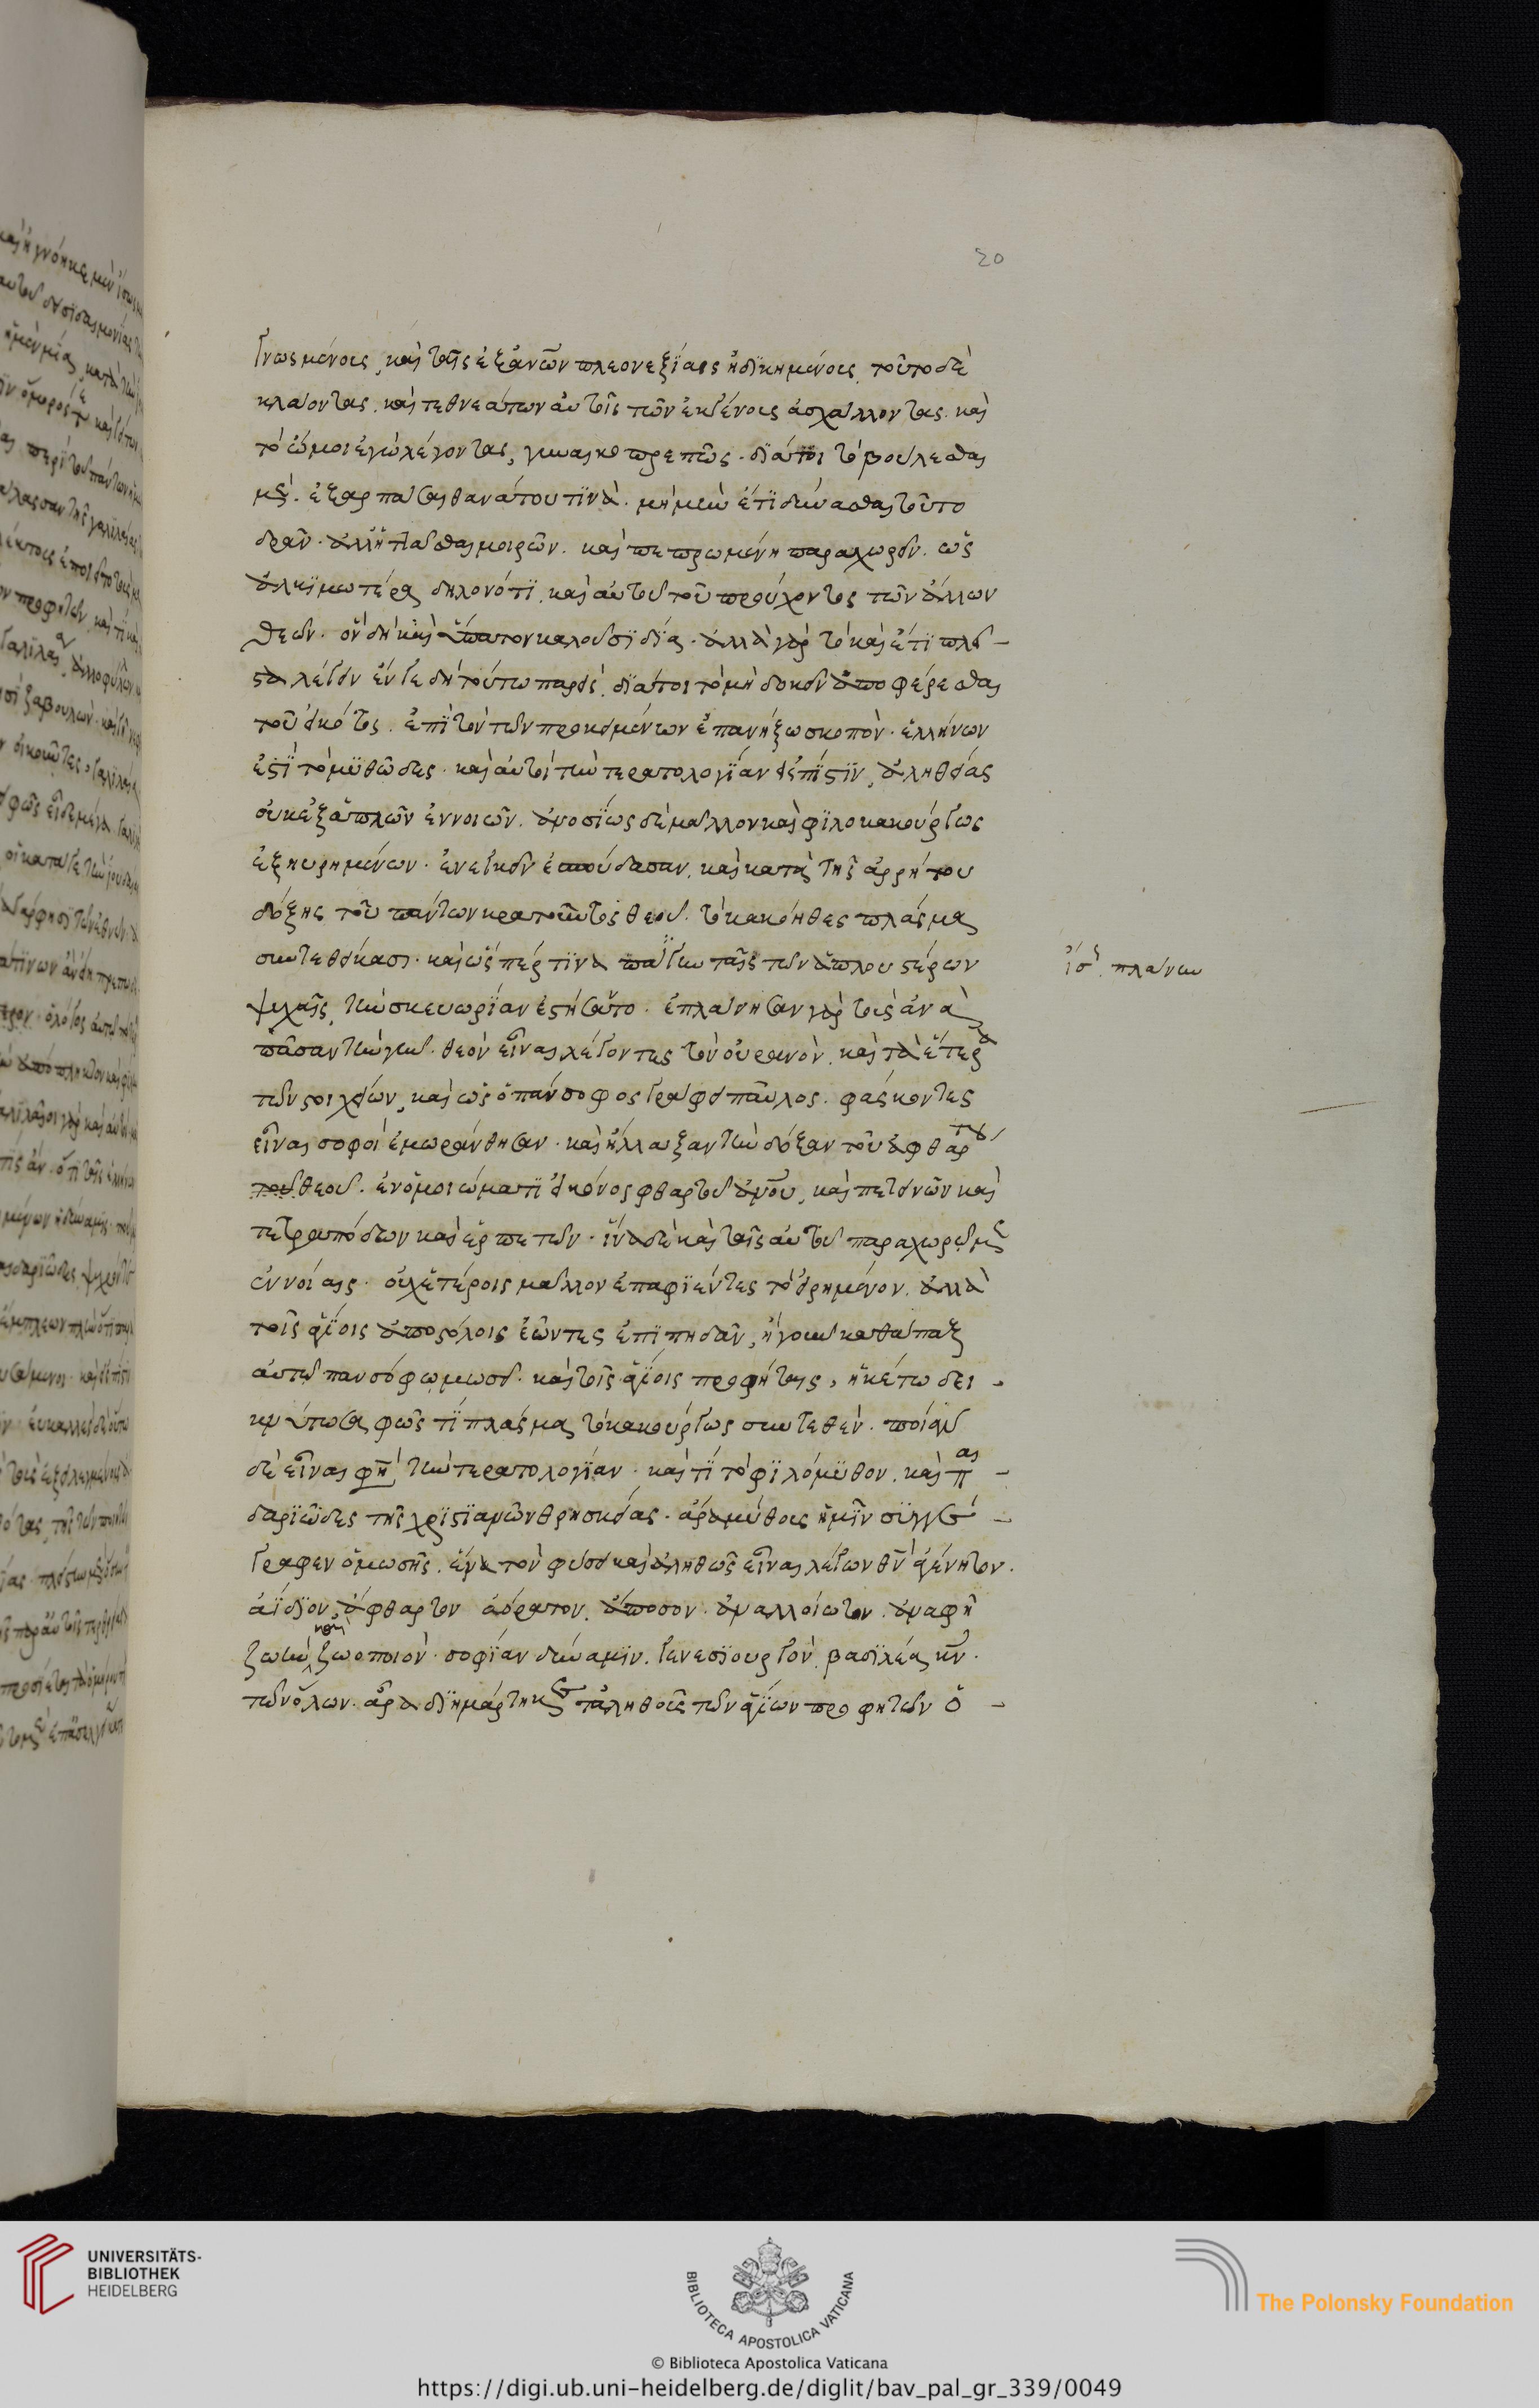 20
γνωσμένους, καὶ ταῖς ἐξ ἀνῶν πλεονεξίαις ἠδικημένους, τοῦτο δὲ
κλαίοντας. καὶ τεθνεάτων αὐτοῖς τῶν ἐκγόνοις ἀσχάλλοντας. καὶ
τὸ ὤμοι ἐγὼ λέγοντας, γυναικοπρεπῶς. διάτοι τὸ βούλεσθαι
μὲν. ἐξαρπάσαι θανάτου τινὰ. μὴ μὴν ἔτι δύνασθαι τοῦτο
δρᾶν. ἀλλ' ἡττᾶσθαι μοιρῶν. καὶ πεπρωμένη παραχωρεῖν. ὡς
ἀλκιμωτέρα δηλονότι, καὶ αὐτοῦ τοῦ προύχοντος τῶν ἄλλων
θεῶν. ὃν δὴ καὶ ὕπατον καλοῦσι δία. ἀλλὰ γὰρ τὸ καὶ ἔτι πλεῖ-
στα λέγειν ἔν γε δὴ τούτω παρεὶς, διάτοι τὸ μὴ δοκεῖν ἀποφέρεσθαι
τοῦ εἰκότος. ἐπὶ τὸν τῶν προκειμένων ἐπανήξω σκοπὸν. ἑλλήνων
ἐστὶ τὸ μυθῶδες. καὶ αὐτοὶ τὴν τερατολογίαν
οὐκ ἐξ ἁπλῶν ἐννοιῶν. ἀνοσίως δὲ μᾶλλον καὶ φιλοκακούργως
ἐξηυρημένων. ἐνεγκεῖν ἐσπούδασαν. καὶ κατὰ τῆς ἀρρήτου
δόξης τοῦ πάντων κρατοῦντος θεοῦ. τὸ κακόηθες πλάσμα
συντεθείκασι. καὶ ὥσπερ τινὰ πάγην ταῖς τῶν ἁπλουστέρων
ἰσ. πλάνην
ψυχαῖς, τὴν σκευωρίαν ἐστήσαντο. ἐπλάνησαν γὰρ τοὺς ἀνὰ
πᾶσαν τὴν γῆν. θεὸν εἶναι λέγοντες τὸν οὐρανὸν, καὶ τὰ ἕτερα
τῶν στοιχείων, καὶ ὡς ὁ πάνσοφος γράφει παῦλος. φάσκοντες
εἶναι σοφοὶ ἐμωράνθησαν. καὶ ἤλλαξαν τὴν δόξαν τοῦ ἀφθάρ
του θεοῦ. ἐν ὁμοιώματι εἰκόνος φθαρτοῦ ἀνου, καὶ πετεινῶν καὶ
τετραπόδων καὶ ἑρπετῶν. ἵνα δὲ καὶ ταῖς αὐτοῦ παραχωρῶμεν
ἐννοίαις. οὐχ ἑτέροις μᾶλλον ἐπαφιέντες τὸ εἰρημένον. ἀλλὰ
τοῖς ἁγίοις ἀποστόλοις ἐῶντες ἐπιπηδᾶν, ἤγουν καθάπαξ
αὐτῶ πανσόφω μωσεῖ. καὶ τοῖς ἁγίοις προφήταις, ἡκέτω δει-
κνύτω σαφῶς τί πλάσμα τὸ κακούργως συντεθὲν. ποίαν
δὲ εἶναι φησὶ τὴν τερατολογίαν. καὶ τί τὸ φιλόμυθον. καὶ παι-
δαριῶδες τῆς χριστιανῶν θρησκείας. ἆρα μύθους ἡμῖν συγγέ-
γραφεν ὁ μωσῆς. ἕνα τὸν φύσει καὶ ἀληθῶς εἶναι λέγων θν ἀγένητον.
ἀΐδιον, ἄφθαρτον ἀόρατον. ἄποσον. ἀναλλοίωτον. ἀναφῆ
ζωὴν καὶ ζωοποιὸν. σοφίαν δύναμιν. γενεσιουργὸν, βασιλέα κν.
τῶν ὅλων. ἆρα διημάρτηκε τἀληθοῦς τῶν ἁγίων προφητῶν ὁ-
UNIVERSITÄTS-
BIBLIOTHEK
HEIDELBERG
BIBLIOTECA APOSTOLICA VATICANA
The Polonsky Foundation
© Biblioteca Apostolica Vaticana
https://digi.ub.uni-heidelberg.de/diglit/bav_pal_gr_339/0049